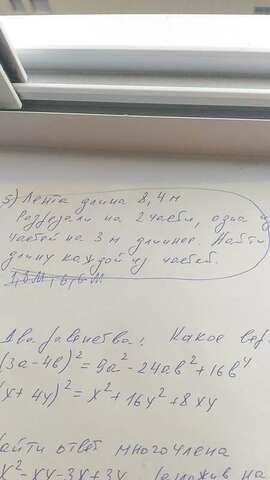 5) Лента длина 8,4 м
Разрезали на 2 части, одна из
частей на 3 м длиннее. Найти
длину каждой из частей.
Два равенства: Какое
(3a-4b)² = 9a² - 24ab² + 16b⁴
(x + 4y)² = x² + 16y² + 8xy
найти ответ многочлена
x² - xy - 3x + 3y на